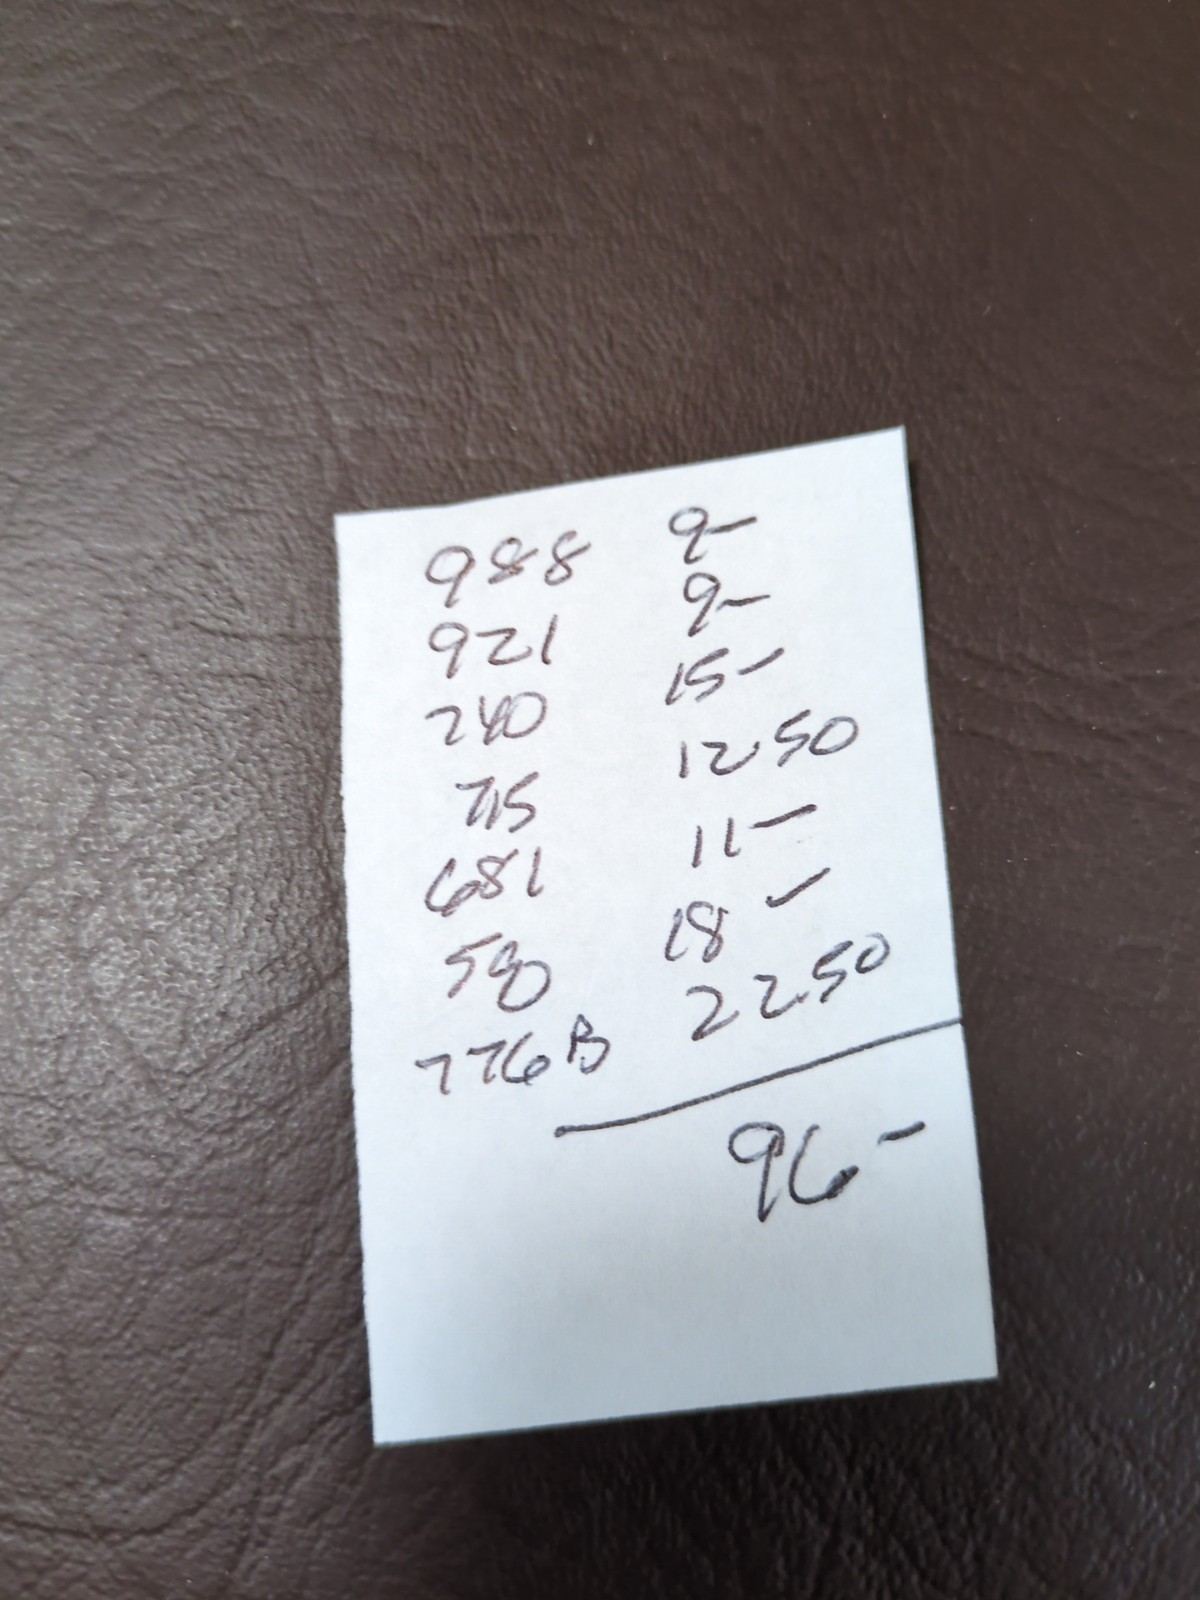 988 9-
921 9-
740 15-
715 12 50
681 11-
580 18 -
776B 22.50
96-